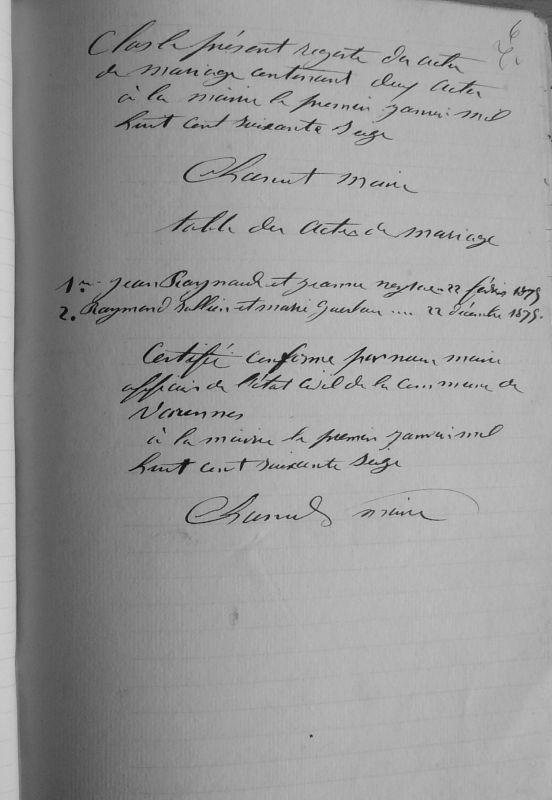 Clos le présent registre des actes
de mariage contenant deux actes
à la mairie le premier janvier mil
huit cent soixante seize
maire
table des actes de mariage
1er jean Raynaud et jeanne 22 février 1875
2. Raymond et marie .... 22 décembre 1875.
Certifié conforme par nous maire
officier de l'état civil de la commune de
Varennes
à la mairie le premier janvier mil
huit cent soixante seize
maire